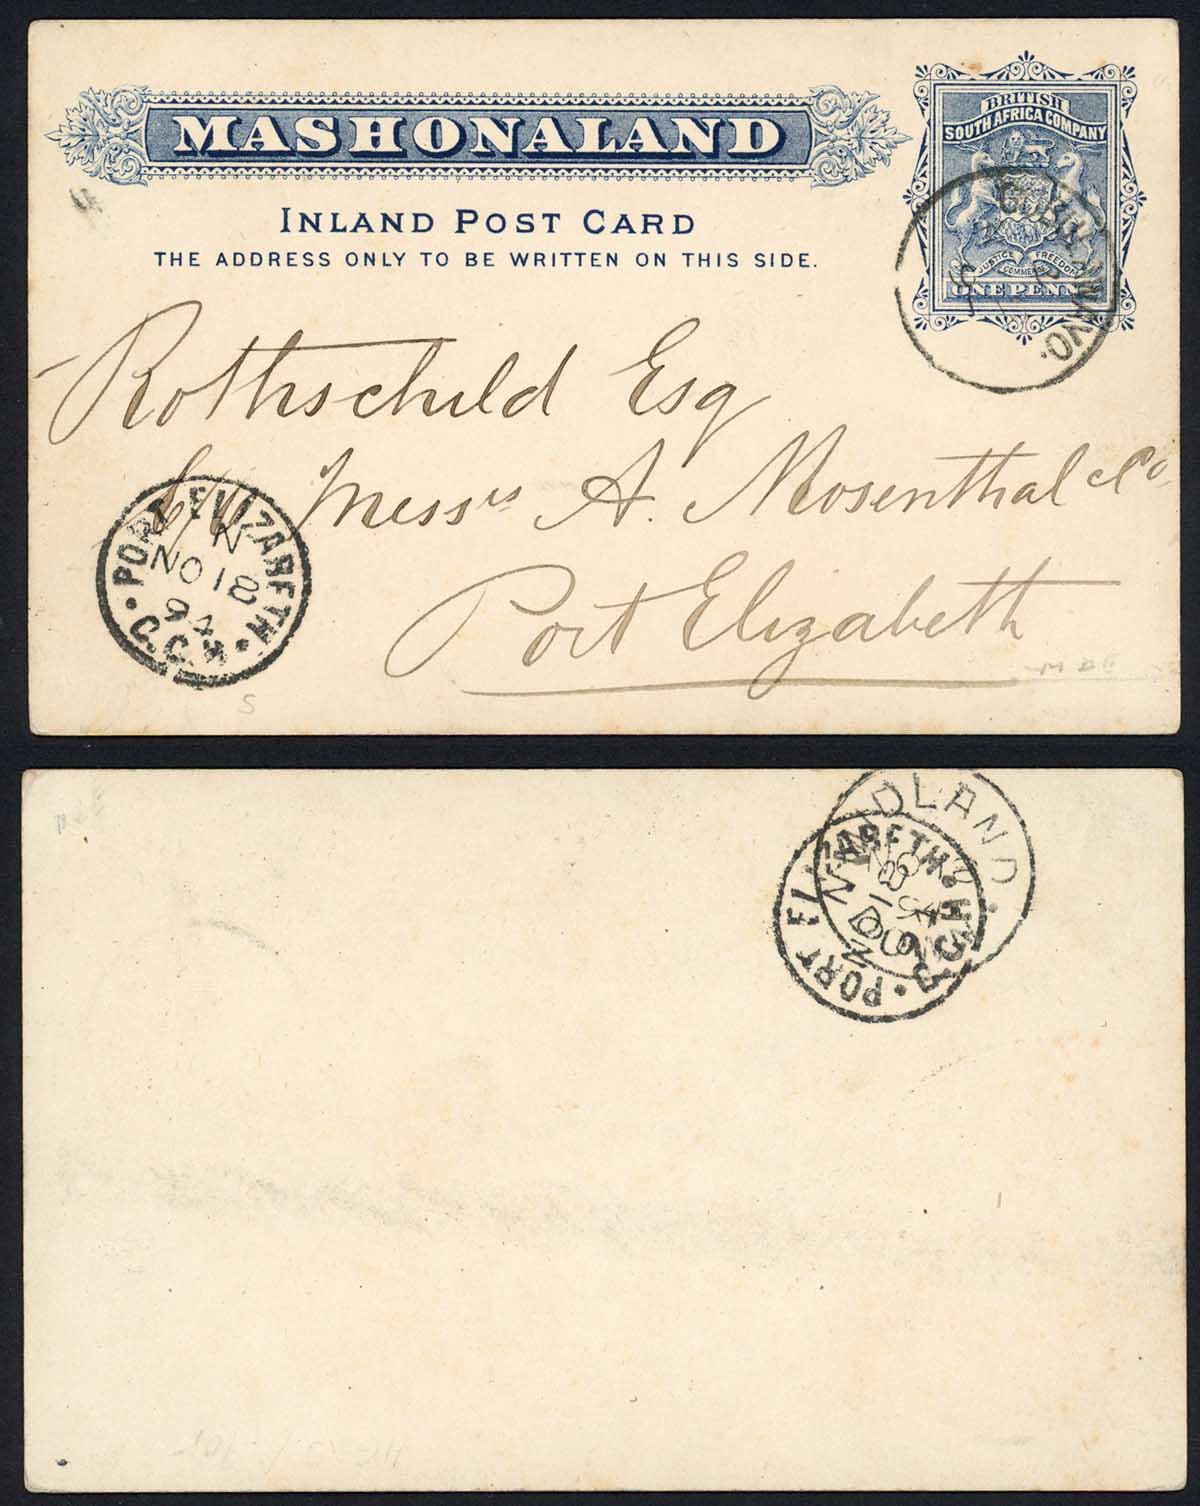 MASHONALAND
INLAND POST CARD
THE ADDRESS ONLY TO BE WRITTEN ON THIS SIDE.
BRITISH
SOUTH AFRICA COMPANY
JUSTICE FREEDOM
COMMERCE
ONE PENNY
Rothschild Esq
Messrs A. Mosenthal & Co
Port Elizabeth
PORT ELIZABETH
N
NO 18
94
G.C.H
4
S
DLAND.
PORT ELIZABETH